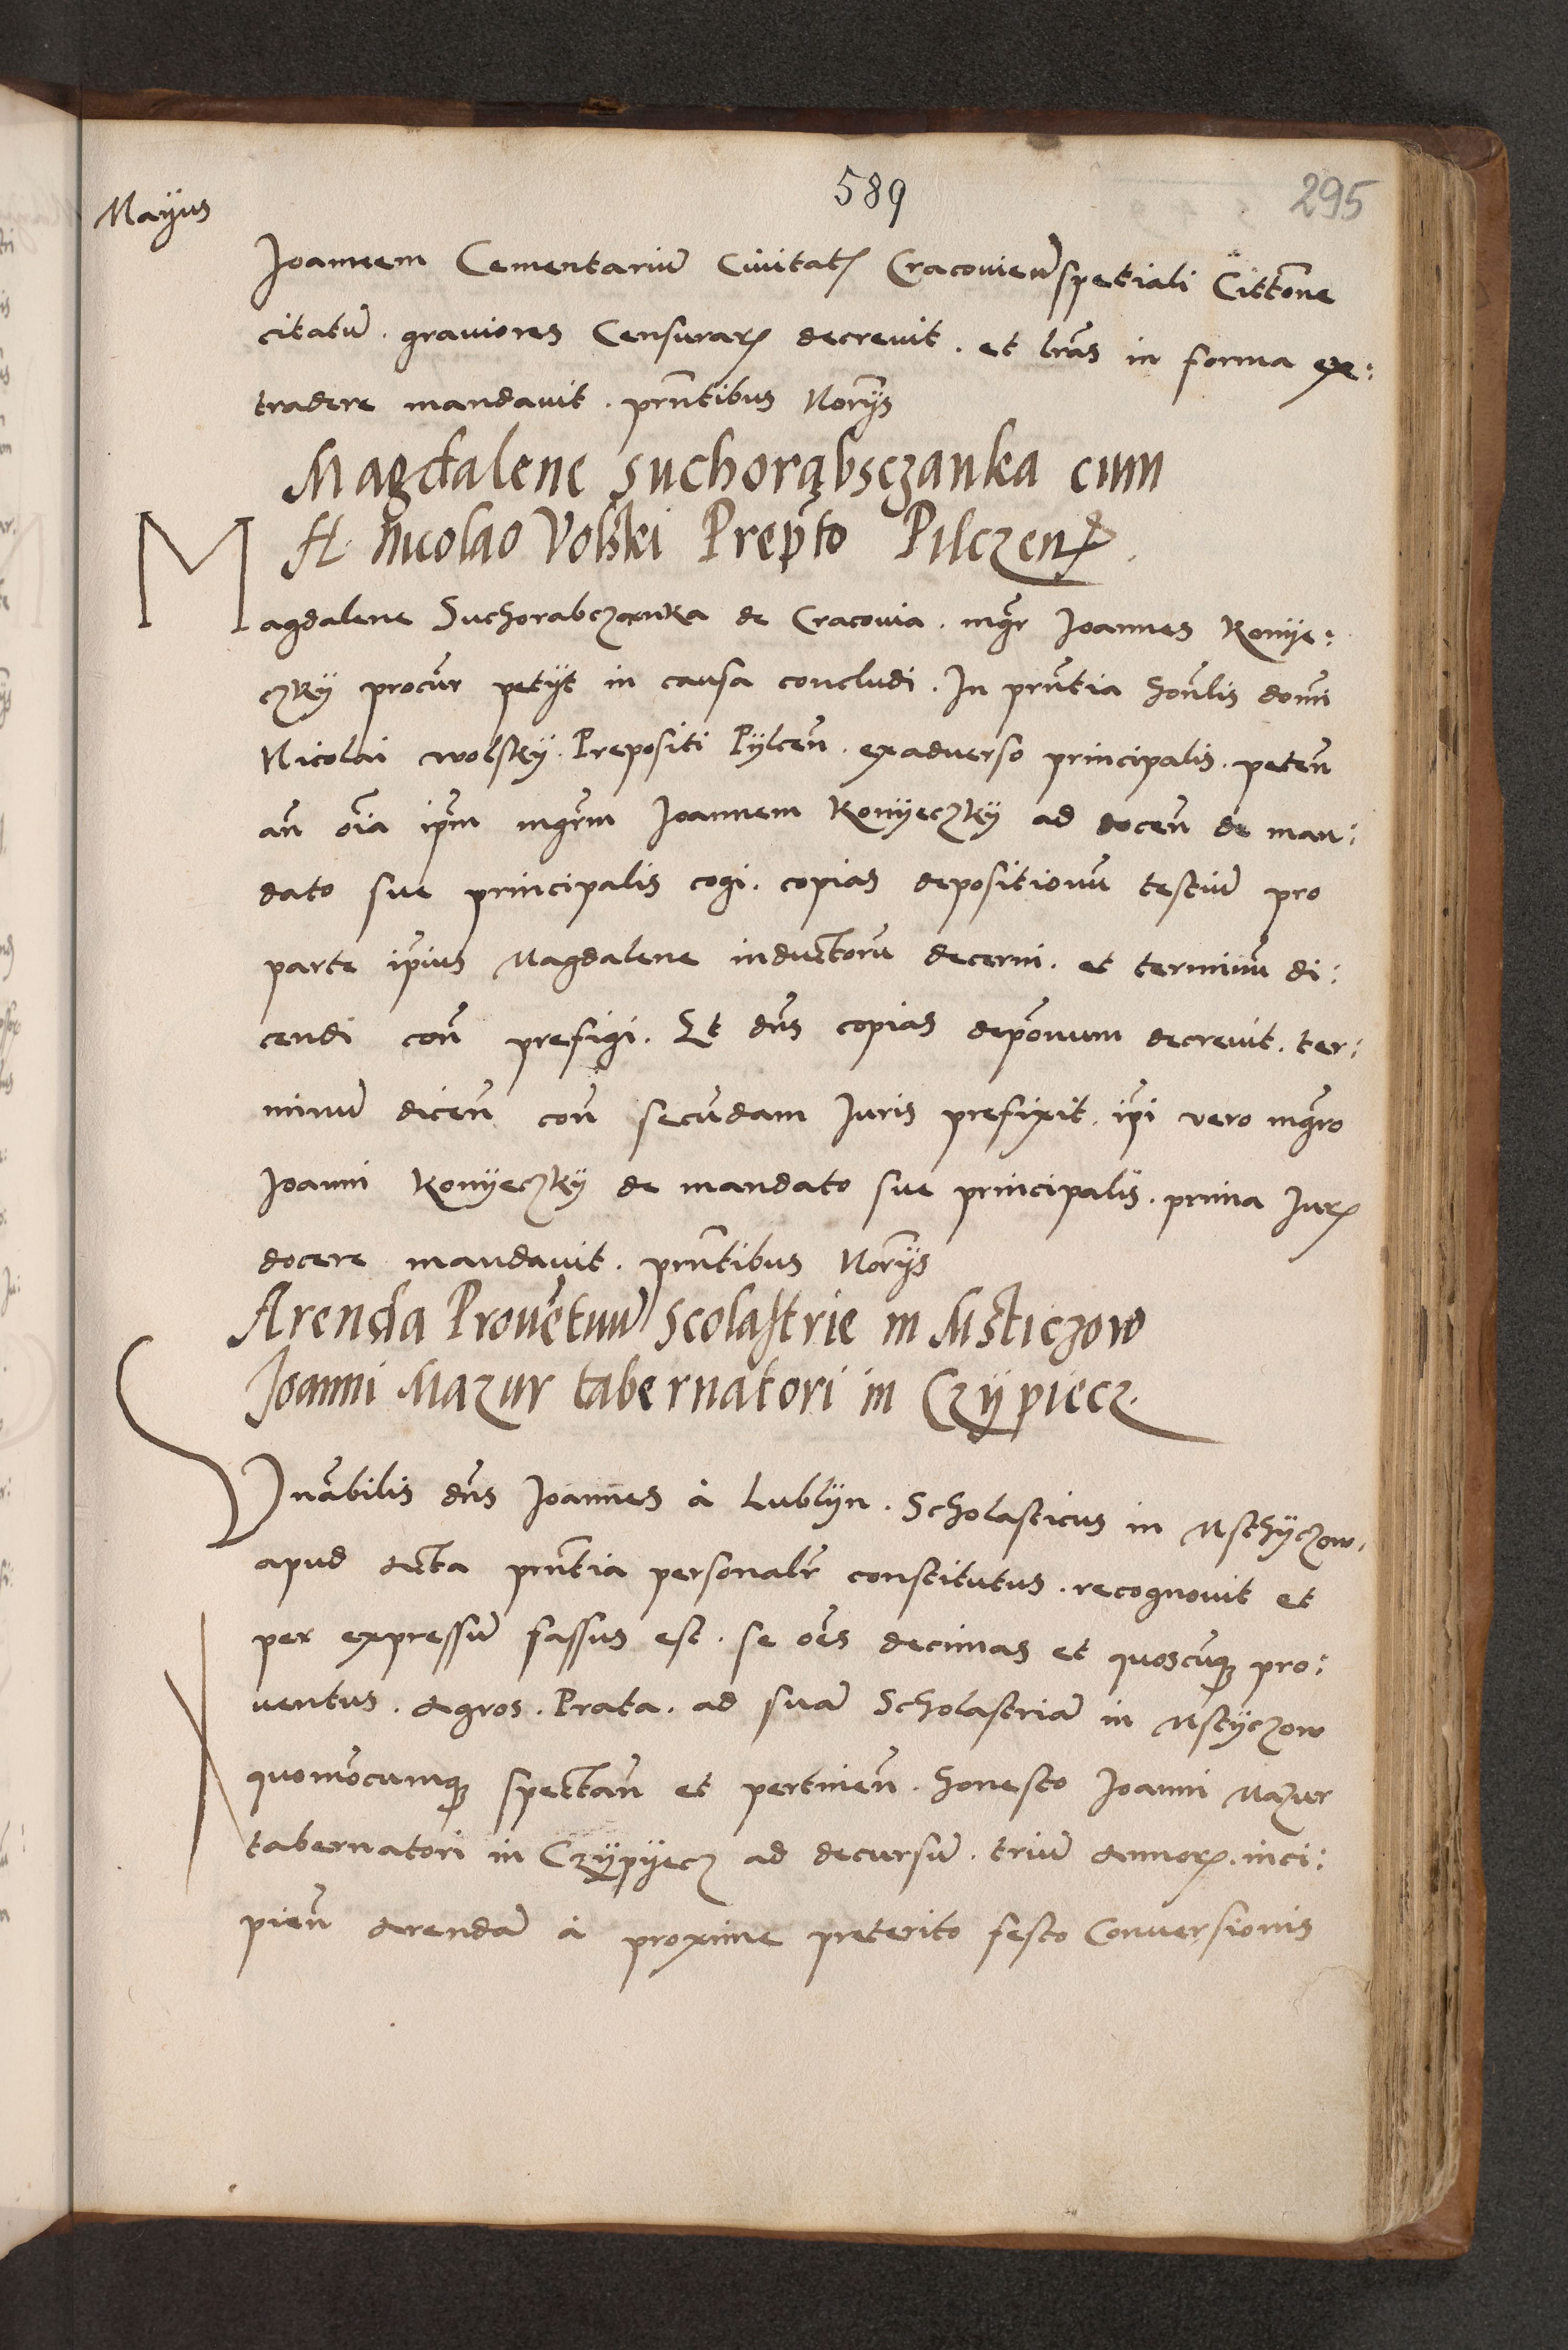 589
295
Mayus
Joannem Cementariū Civitatꝭ Cracovien̄ spetiali Cittōne
citatū. graviores Censurarꝝ decrevit. et lr̄as in forma ex:
tradere mandavit. pn̄tibus Nor̄ijs
Magdalene Suchorąbsczanka cum
H. Nicolao Volski Prep̄to Pilczen̄.
Magdalene Suchorabczanka de Cracovia. mḡr Joannes Konye:
czky procur̄ petijt in causa concludi. In pn̄tia hon̄lis domi
Nicolai wolsky. Prepositi Pylcen̄. exadverso principalis. peten̄
an̄ oīa ip̄m mgr̄m Joannem Konyeczky ad docen̄ de man:
dato sue principalis cogi. copias depositionū testiū pro
parte ip̄ius Magdalene inductorū decerni. et terminū di:
cendi con̄ prefigi. Et dn̄s copias dep̄onum decrevit. ter:
minū dicen̄ con̄ secūdam Juris prefixit. ip̄i vero mgr̄o
Joanni Konyeczky de mandato sue principalis. prima Jurꝭ
docere mandavit. pn̄tibus Nor̄ijs
Arenda Provētuū Scolastrie in Msticzow
Joanni Mazur tabernatori in Czÿpiecz.
Vn̄abilis dn̄s Joannes à Lublyn. Scholasticus in Msthyczow.
apud Acta pn̄tia personalr̄ constitutus. recognovit et
per expressū fassus est. se oēs decimas et quoscūqꝫ pro:
ventus. Agros. Prata. ad suā Scholastriā in Mstyczow
quomōcumqꝫ spectan̄ et pertinen̄. honesto Joanni Mazur
tabernatori in Czÿpyecz ad decursū. triū Annorꝝ. inci:
pien̄ Arendā à proxime preterito festo Conversionis